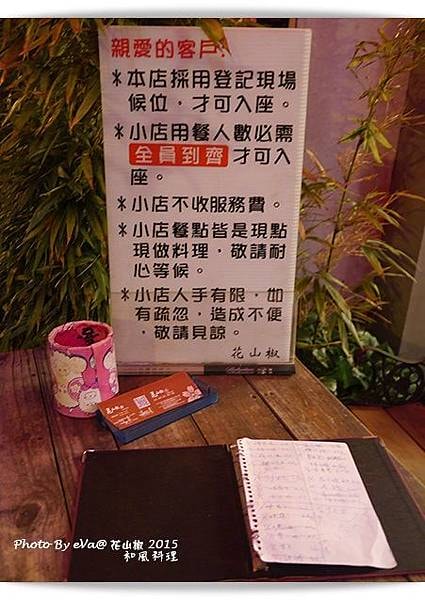 親愛的客戶:
*本店採用登記現場
候位，才可入座。
*小店用餐人數必需
全員到齊才可入
座。
*小店不收服務費。
*小店餐點皆是現點
現做料理，敬請耐
心等候。
*小店人手有限，如
有疏忽，造成不便
，敬請見諒。
花山椒
Photo By eVa@ 花山椒 2015
和風料理